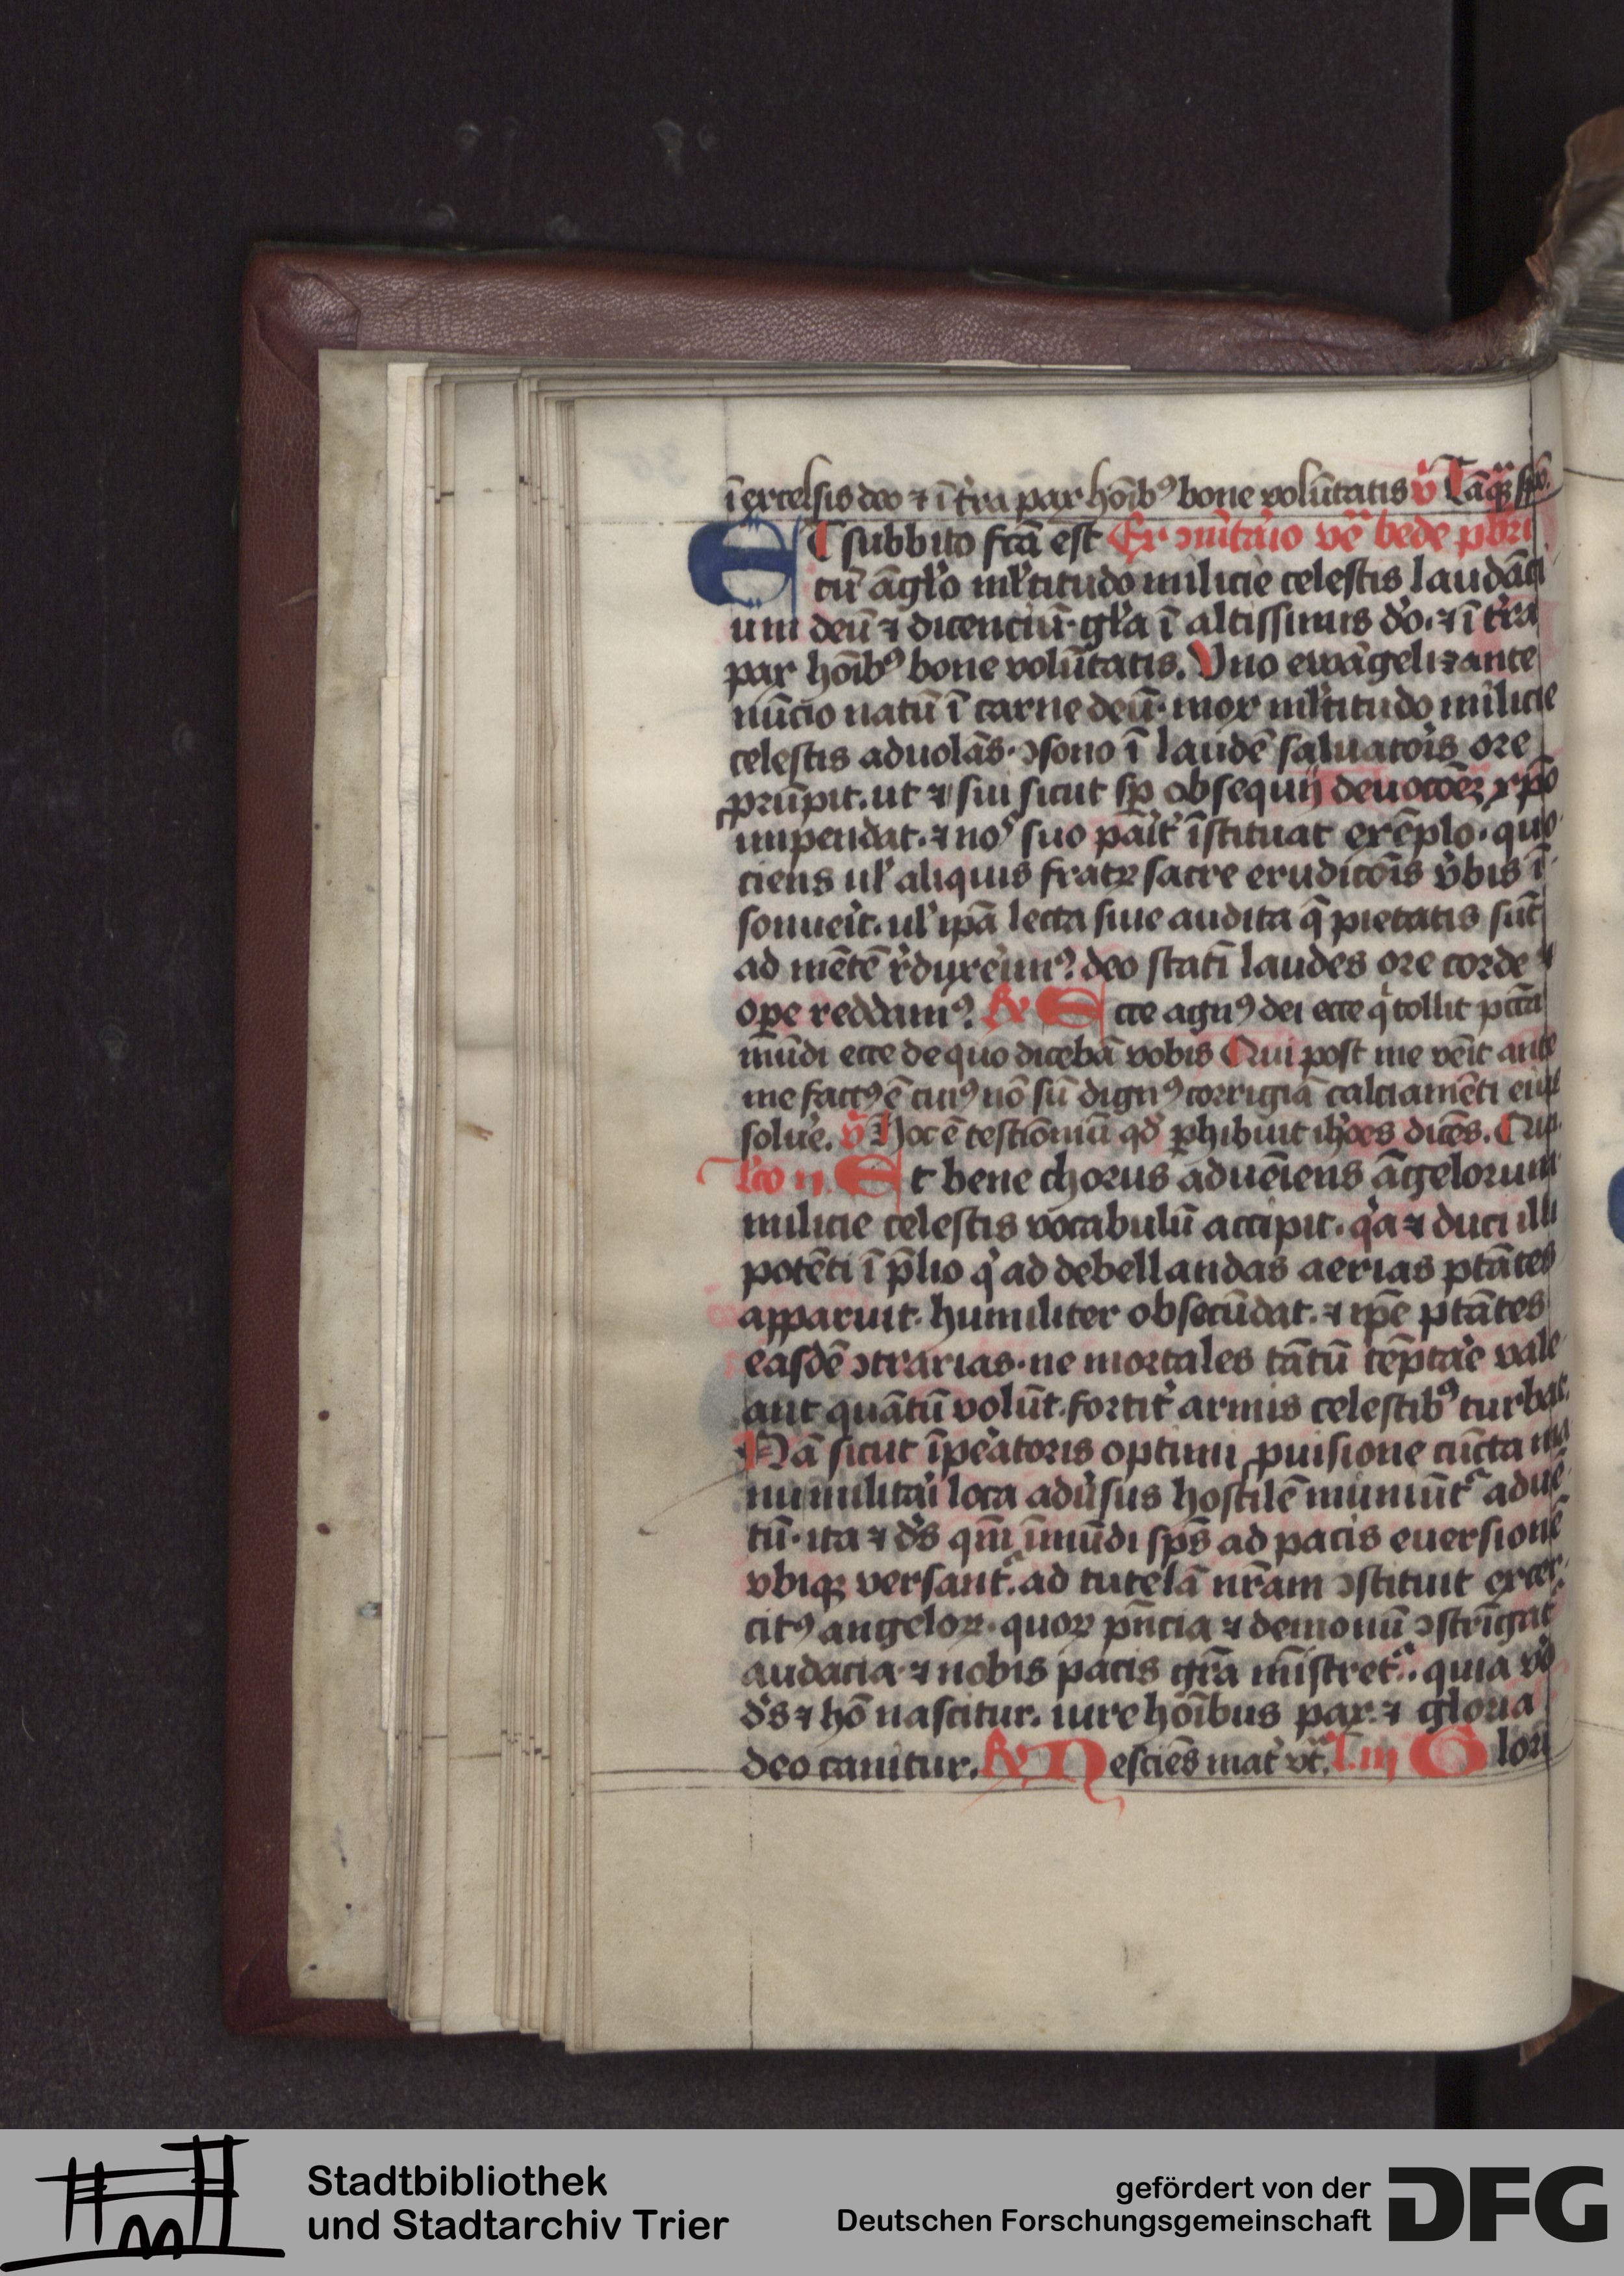 ī excelsis deo ⁊ ī t̓ra pax hōibꝰ bone volūtatis v̓ Tāqᷓꝫ spō.
ET subbito fcā est Ex ↄm̄tar̓io vē bede pb̄ri
cū āgl̓o ml̓titudo milicie celestis laudāci
um deū ⁊ dicenciū· gl̓a ī altissimis d̓o. ⁊ ī t̓ra
pax hōibꝰ bone volūtatis. Vno ewāgelizante
nūcio natū ī carne deū· mox ml̓titudo milicie
celestis aduolās· ↄsono ī laudē saluator̓is ore
ꝓrūpit. ut ⁊ sui sicut sp̄ obsequij deuocōeꝫ xp̄o
impendat. ⁊ noˢ suo pāit̓ īstituat exēplo. quo
ciens ul̓ aliquis fratꝝ sacre erudicōis v̓bis ī
sonueit̓. ul̓ ip̄a lecta siue audita q̄ pietatis sūt
ad mētē r̓duxeim̓ꝰ deo statī laudes ore corde ⁊
oꝑe reddamꝰ. ℟ Ecce agnꝰ dei ecce q̓ tollit pcc̄a
mūdi ecce de quo dicebā vobis Qui post me vēit ante
me factꝰ ē cuiꝰ nō sū dignꝰ corrigiā calciamēti eiꝰ
soluē. v̓ Hoc ē testiōniū qd̓ ꝑhibuit ioh̓es dicēs. Qui p.
Lc̄o ij. Et bene chorus aduēiens āgelorum
milicie celestis vocabulū accipit. q̓a ⁊ duci illi
potēti ī p̄lio q̓ ad debellandas aerias ptātes
apparuit. humiliter obsecūdat. ⁊ ip̄e ptātes
easdē ↄtrarias. ne mortales tātū tēptar̓e vale
ant quātū volūt. fortit̓ armis celestibꝰ turbat.
Nā sicut īpeatoris optimi ꝓuisione cūcta ma
nu militar̓i loca adūsus hostilē muniūtᷓ aduē
tū· ita ⁊ d̓s qm̄ īmūdi sp̄s ad pacis euersionē
vbiqꝫ versantᷓ. ad tutelā nr̄am ↄstituit exer
citꝰ angeloꝝ. quoꝝ pn̄cia ⁊ demoniū ↄstrīgat
audacia. ⁊ nobis pacis gr̄a mīstretᷓ. quia v̓o
d̓s ⁊ hō nascitur. iure hōibus pax. ⁊ gloria
deo canitur. ℟ Nesciēs mat̓ vt̓. L. iij Glori
Stadtbibliothek
und Stadtarchiv Trier
gefördert von der
Deutschen Forschungsgemeinschaft
DFG